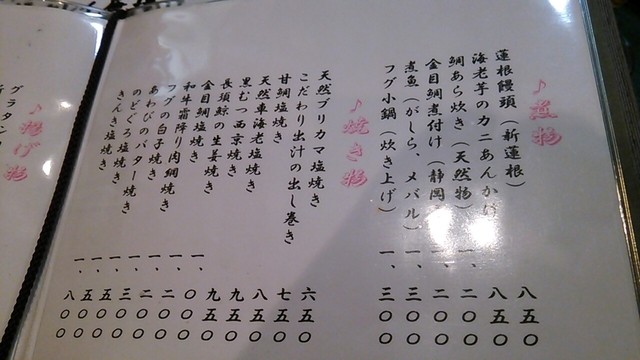 ♪煮物
蓮根饅頭(新蓮根) 八五〇
海老芋のカニあんかけ 八五〇
鯛あら炊き(天然物) 一、二〇〇
金目鯛煮付け(静岡 一、二〇〇
煮魚(がしら、メバル)
フグ小鍋(炊き上げ) 一、三〇〇
♪焼き物
天然ブリカマ塩焼き 六五〇
こだわり出汁の出し巻き 七五〇
甘鯛塩焼き 八五〇
天然車海老塩焼き 九五〇
黒むつ西京焼き 九五〇
長須鯨の生姜焼き 一、〇〇〇
金目鯛塩焼き 一、二〇〇
和牛霜降り肉 焼き 一、二〇〇
フグの白子焼き 一、三〇〇
あわびのバター焼き 一、五〇〇
のどぐろ塩焼き 一、五〇〇
きんき塩焼き 一、八〇〇
♪揚げ物
グラタン